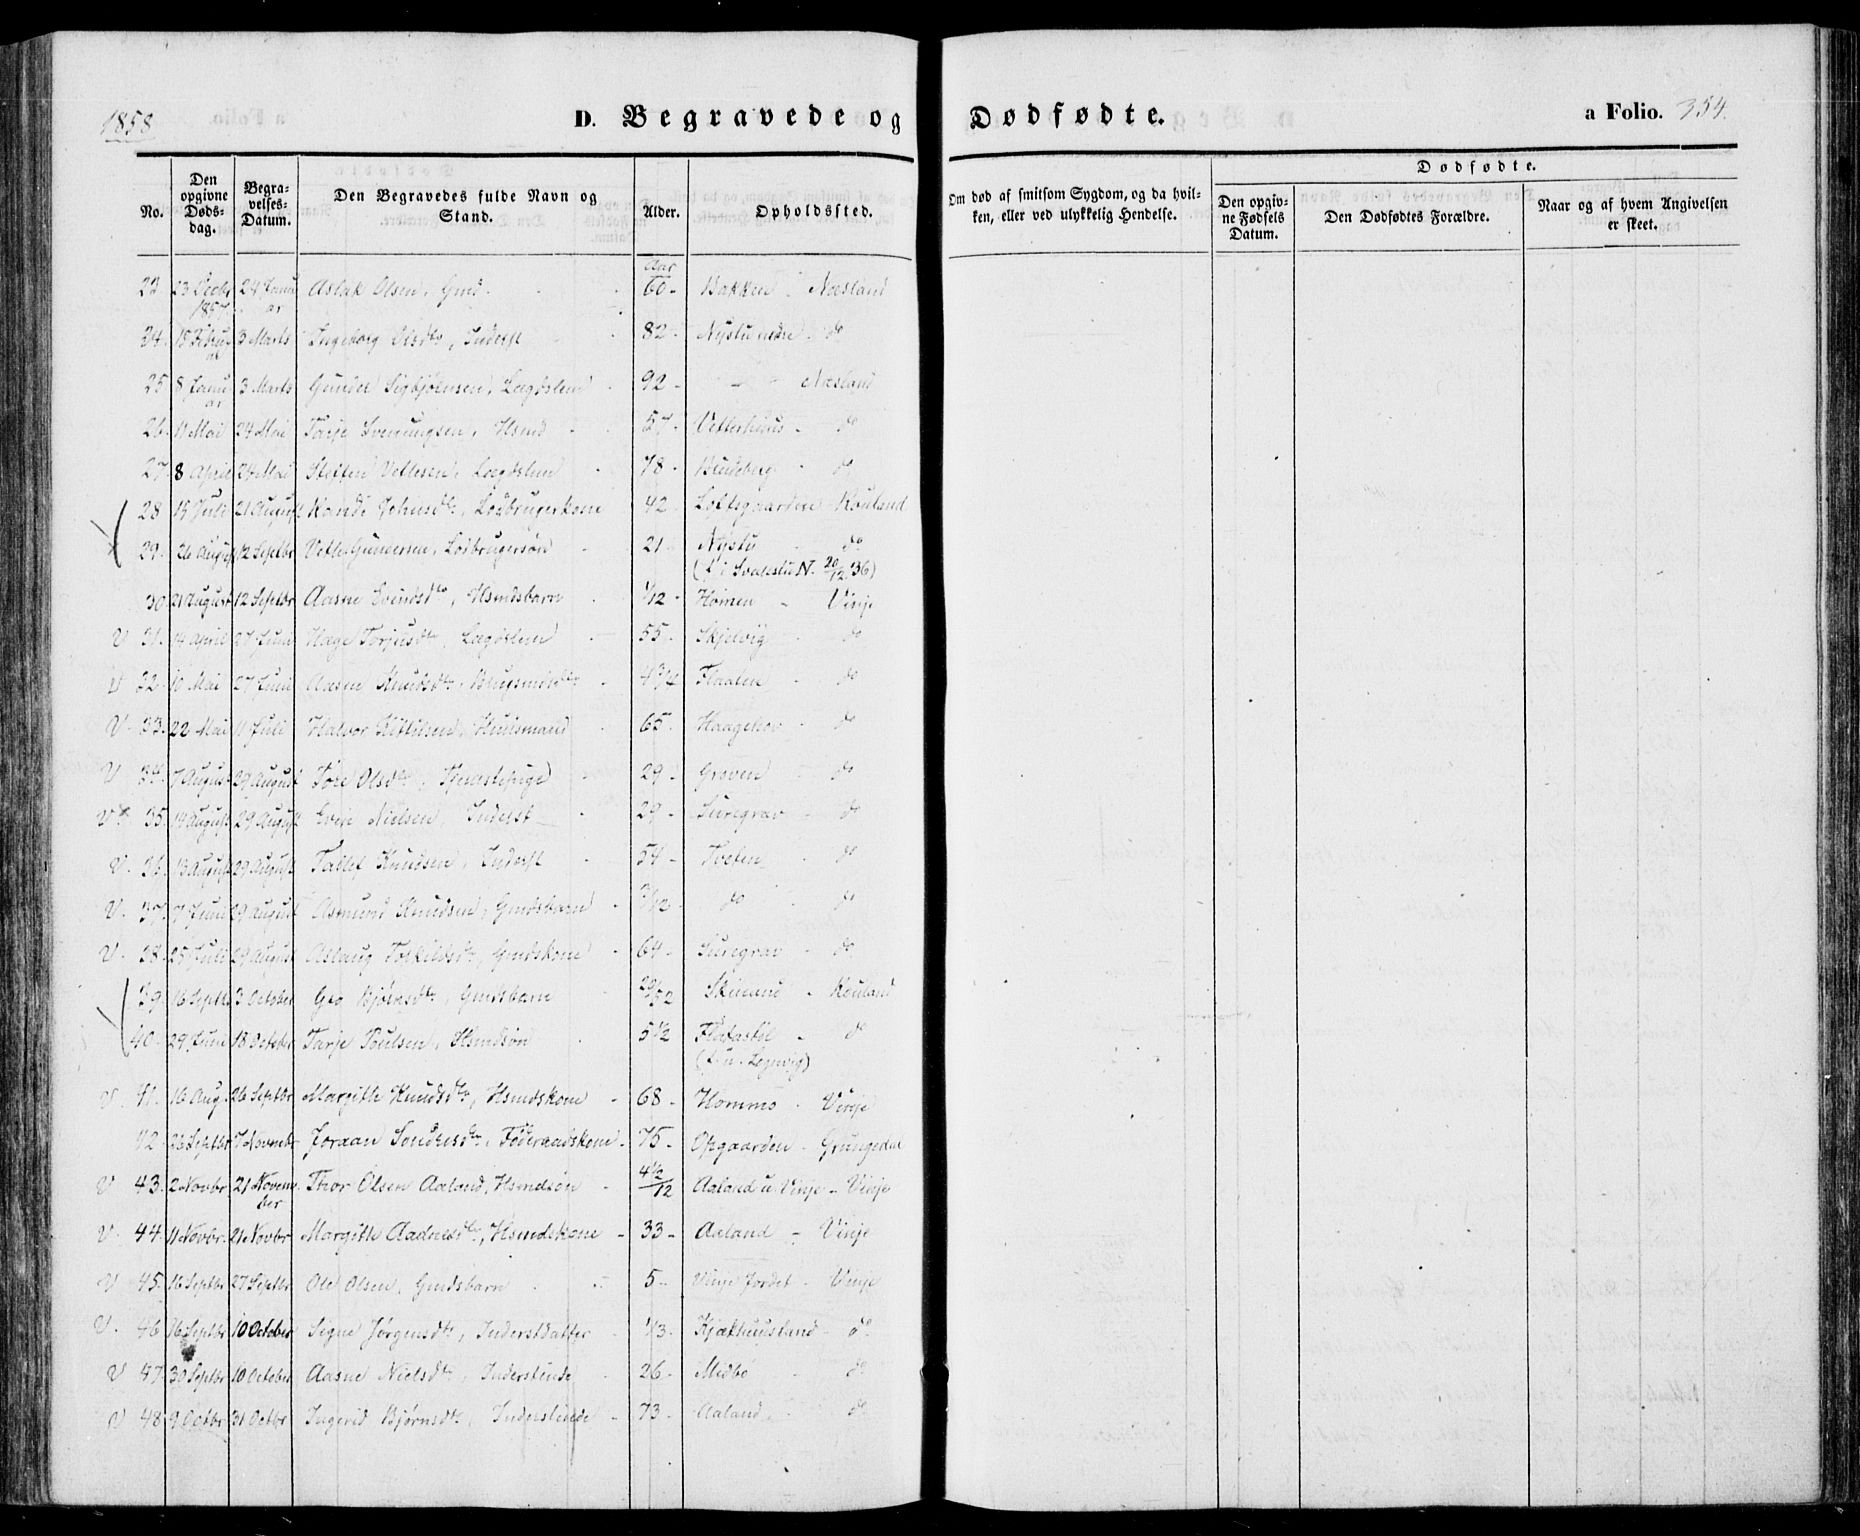 1858
D. Begravede og Dødfødte.
a Folio. 354.
No.
Den opgivne Døds-dag.
Begra-velses-Datum.
Den Begravedes fulde Navn og Stand.
Alder.
Opholdssted.
Om død af smitsom Sygdom, og da hvil-ken, eller ved ulykkelig Hendelse.
Dødfødte.
Den opgiv-ne Fødsels Datum.
Den Dødfødtes Forældre.
Naar og af hvem Angivelsen er skeet.
Aar
23 23 Decbr 1857 24 Janu ar Aslak Olsen, Gmd. 60 - Bakken - Næsland
24. 18 Febru ar 3 Marts Ingeborg Olsdtr, Inderst 82 - Nystu nedre - do
25 8 Janu ar 3 Marts Gunder Sigbjørnsen, Lægdslem 92 - - Næsland
26. 11 Mai 24 Mai Tarje Svenungsen, Hsmd - 57 - Vetterhuus - do
27. 8 April 24 Mai Steffen Vetlesen, Lægdslem 78 - Bludeberg - do
28 15 Juli 21 August Kande Johnsdtr, Losbrugerkone 42 - Loftsgaarden - Rouland
29. 26 August 12 Septbr Vetle Gundersen, Losbrugersøn 21 - Nystu - do
(f. i Svalestu N. 20/12 36)
30 21 August 12 Septbr Aasne Evindsdtr, Hsmdsbarn 1/12 - Homen - Vinje
V 31. 14 April 27 Juni Hæge Torjusdtr, Lægdslem 55 - Skjelvig - do
V 32. 10 Mai 27 Juni Aasne Knudsdtr, Huusmdsdtr 4 3/4 Flaaten - do
V. 33. 22 Mai 11 Juli Halvor Kittilsen, Huusmand 65 - Haagehov - do
V 34. 7 August 29 August Tore Olsdtr, Tjenestepige 29 - Groven - do
V. 35. 14 August 29 August Evin Nielsen, Inderst - 29 - Suregrav - do
V. 36. 13 August 29 August Tallef Knudsen, Inderst 54 - Tveten - do
V. 37. 7 Juni 29 August Asmund Knudsen, Gmdsbarn - 3/12 - do - do
V. 38. 25 Juli 29 August Aslaug Torkildsdtr, Gmdskone - 64 - Suregrav - do
39. 16 Septbr 3 October Gro Bjørnsdtr, Gmdsbarn 20/52 Skinand - Rouland
40. 29 Juni 18 October Tarje Poulsen, Hsmdsøn 5 1/2 Flatastøl - do
(f. u. Lognvig)
V. 41. 16 Aug. 26 Septbr Margithe Knudsdtr, Hsmdskone - 68 - Hommo - Vinje
42. 26 Septbr 7 Novembr Joraan Sondresdtr, Føderaadskone - 75 - Opgaarden - Grungedal
V 43. 2 Novbr 21 Novem ber Thor Olsen Aaland, Hsmdsøn - 4 1/2/12 Aaland u. Vinje - Vinje
V. 44. 11 Novbr. 21 Novbr Margithe Aadnesdtr, Hsmdskone - 33 - Aaland - Vinje
V 45. 16 Septbr 27 Septbr Ole Olsen, Gmdsbarn 5 - Vinje Jordet - Vinje
V. 46 16 Septbr 10 October Signe Jørgensdtr, Inderstdatter 1/3 - Kjækhuusland - do
V 47. 30 Septbr 10 October Aasne Nielsdtr, Inderstinde - 26 - Midbø - do
V 48. 9 Octbr 31 Octbr Ingerid Bjørnsdtr, Inderstinde - 73 - Aaland - do